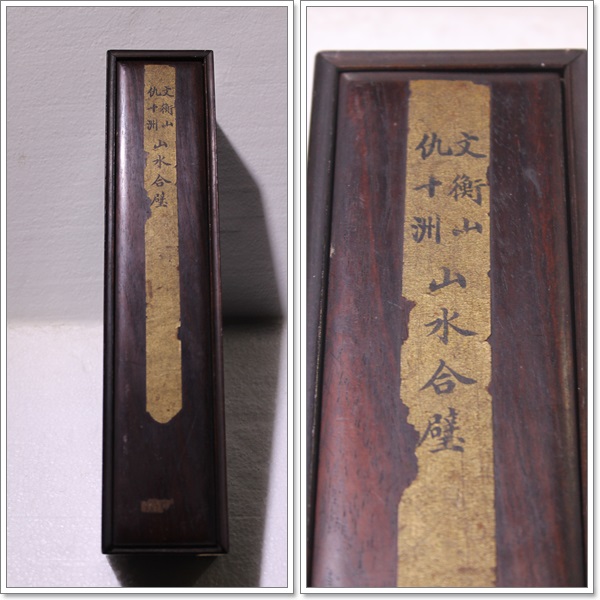 文衡山
仇十洲
山水合璧
文衡山
仇十洲
山水合璧